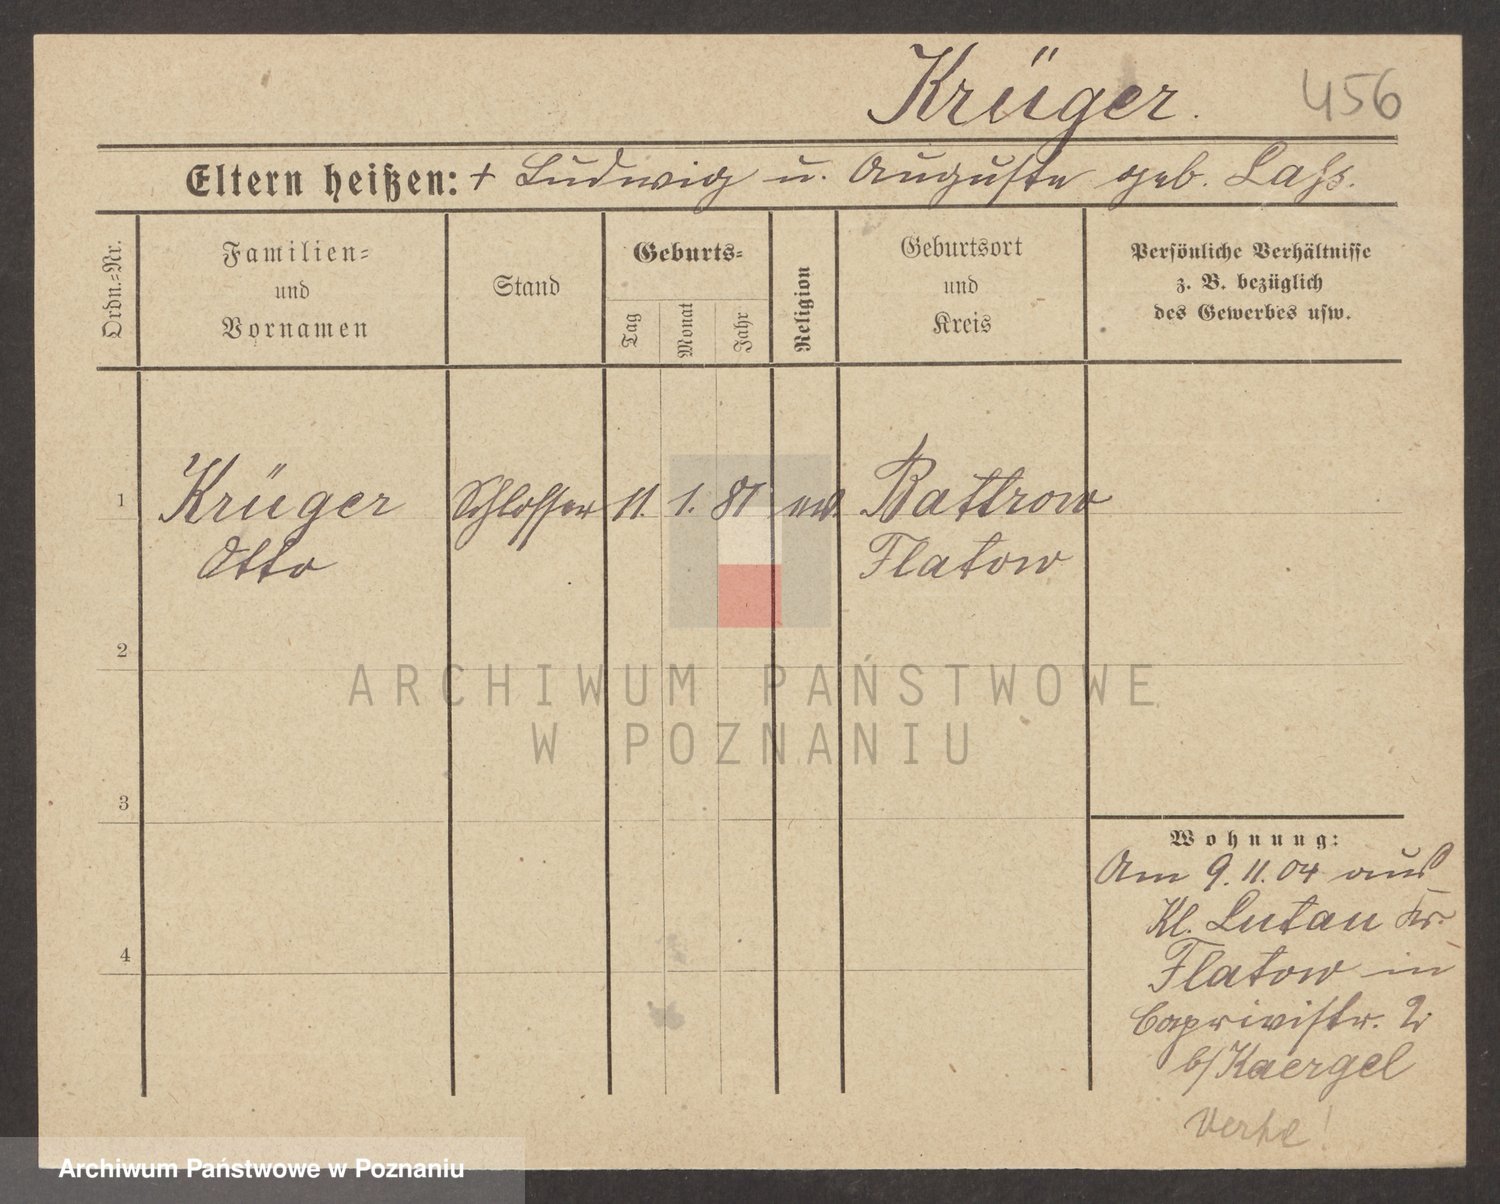 Krüger. 456
Eltern heißen: + Ludwig u. Auguste geb. Laß.
Ordn.=Nr.
Familien=
und
Vornamen
Stand
Geburts=
Tag
Monat
Jahr
Religion
Geburtsort
und
Kreis
Persönliche Verhältnisse
z. B. bezüglich
des Gewerbes usw.
1 Krüger Schlosser 11. 1. 81 ev. Battrow
Otto Flatow
2
3
4
Wohnung:
Am 9.11.04 aus
Kl. Lutau Kr.
Flatow in
Caprivistr. 2
b/Kaergel
ARCHIWUM PAŃSTWOWE
W POZNANIU
Archiwum Państwowe w Poznaniu